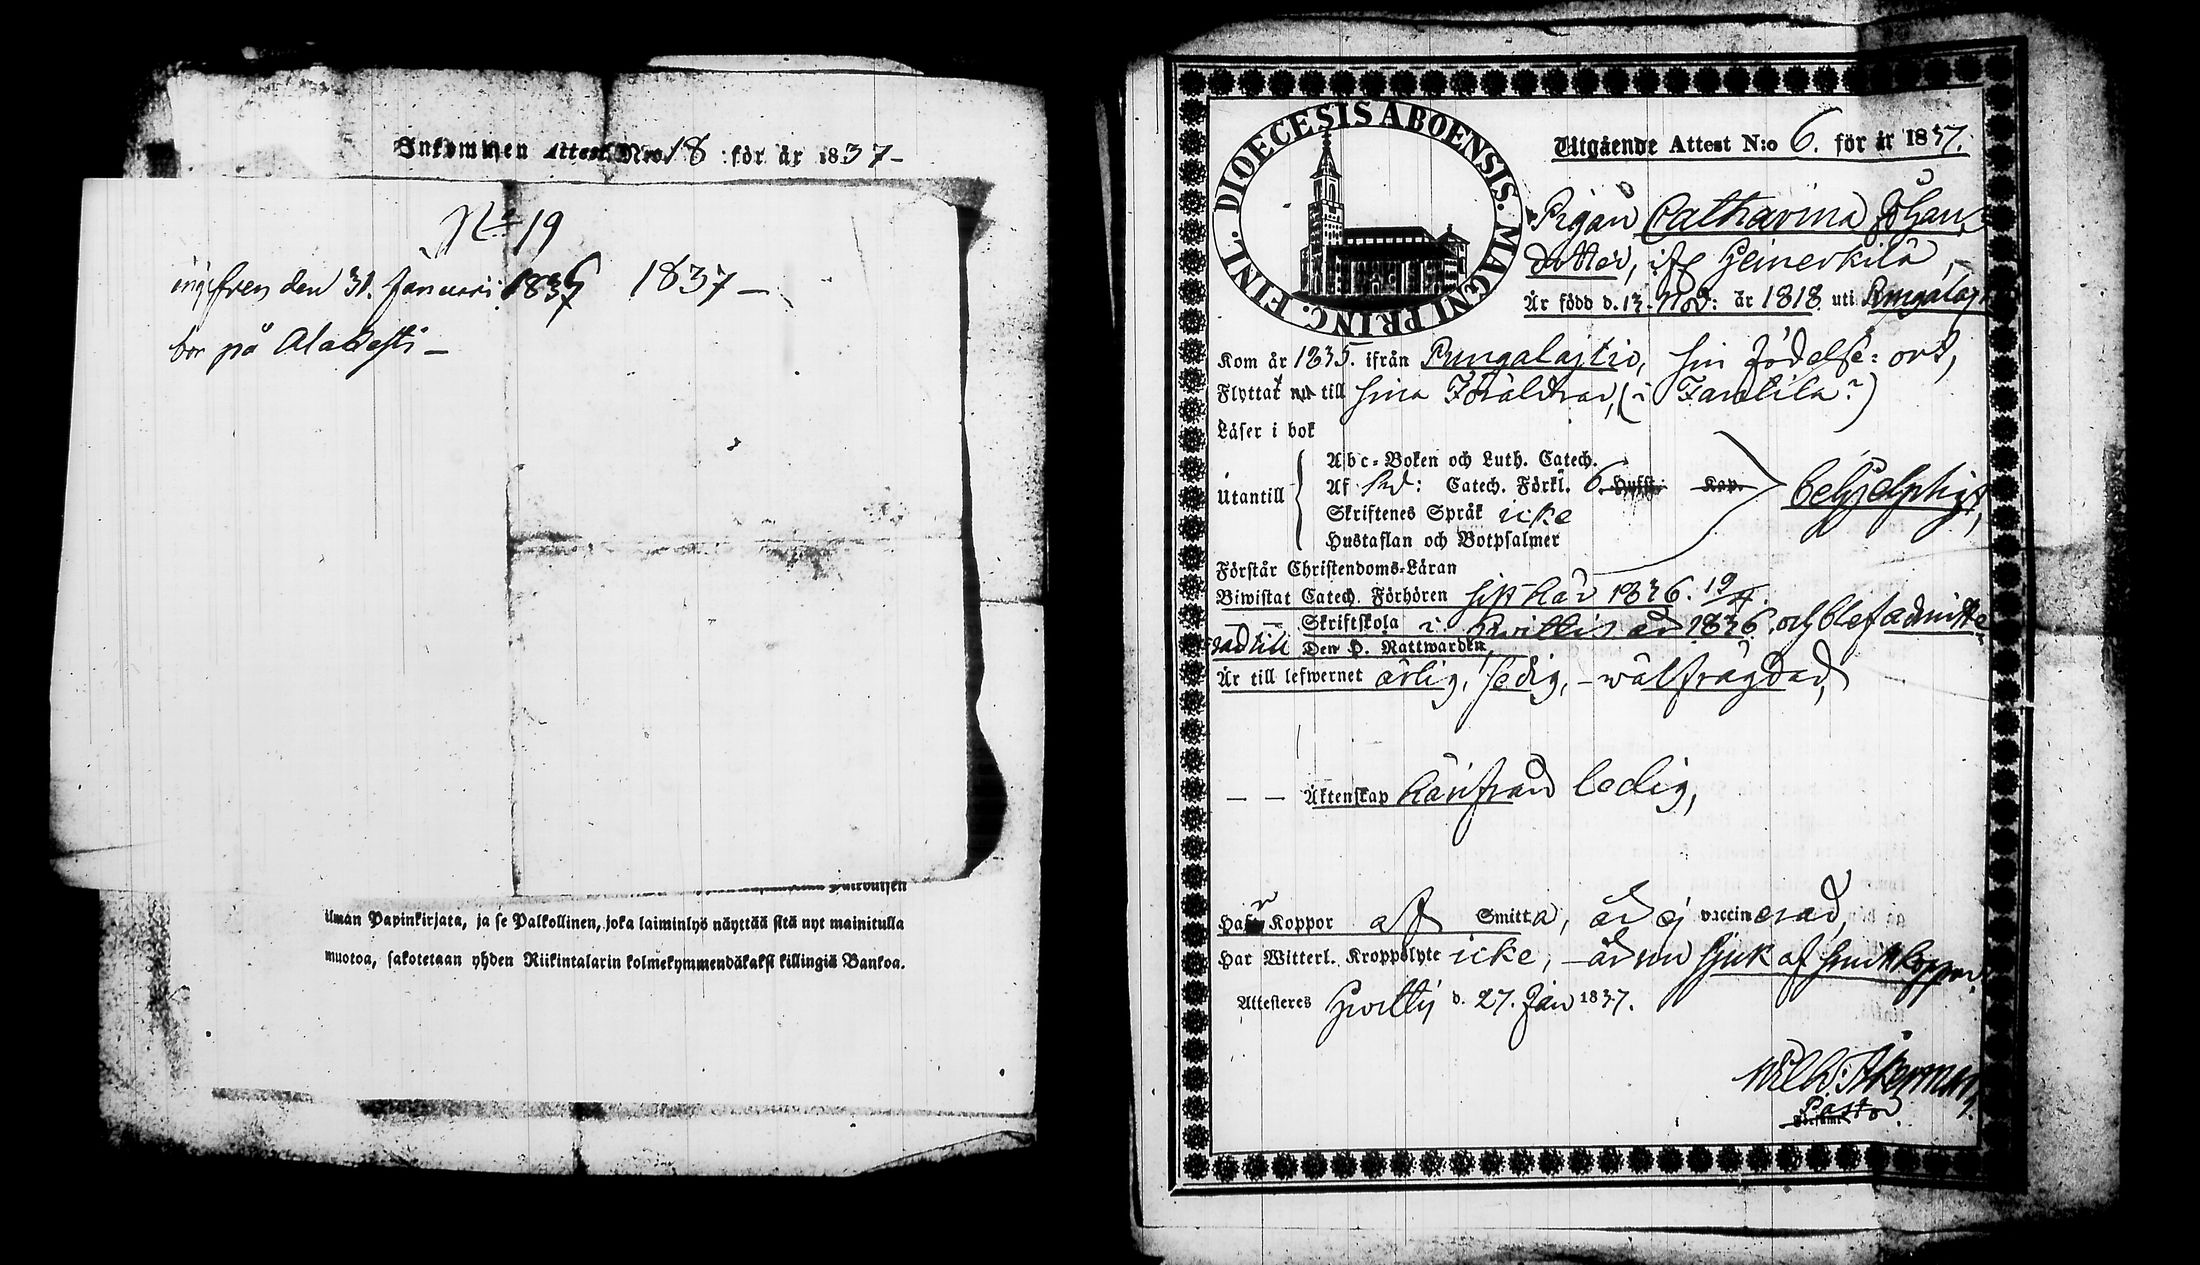 Inkommen Attest Nro 18 för år 1837 –
No 19
den 31. Januari 1837 1837 –
bor på
ilman Papinkirjata, ja se Palkollinen, joka laiminlyö näyttää sitä nyt mainitulla
muotoa, sakotetaan yhden Riikintalarin kolmekymmendäkaksi killingiä Bankoa.
DIOECESIS ABOENSIS. MAGNI PRINC. FINL.
Utgående Attest N:o 6. för år 1837.
Pigan Catharina Johans
dotter, ifr
Är född d. 13. Nov: år 1818 uti
Kom år 1835. ifrån Pungalajtio, sin födelse: ort,
Flyttat nu till sina Föräldrar, (i
Läser i bok
Utantill
Abc-Boken och Luth. Catech.
Af Sved: Catech. Förkl. 6. Hufst. Kap. behjelpligt,
Skriftenes Språk icke
Hustaflan och Botpsalmer
Förstår Christendoms-Läran
Biwistat Catech. Förhören sist här 1836.
— — Skriftskola i år 1836. och blef admitte-
rad till Den H. Nattwarden
Är till lefwernet ärlig, sedig, – wälfrägdad,
— — Äktenskap härifrån ledig,
Haft Koppor af Smitta, är ej vaccinerad,
Har Witterl. Kroppslyte icke, – är nu sjuk af smittkoppor.
Attesteres d. 27. Jan 1837.
Wilh: Åkerman,
Pastor.